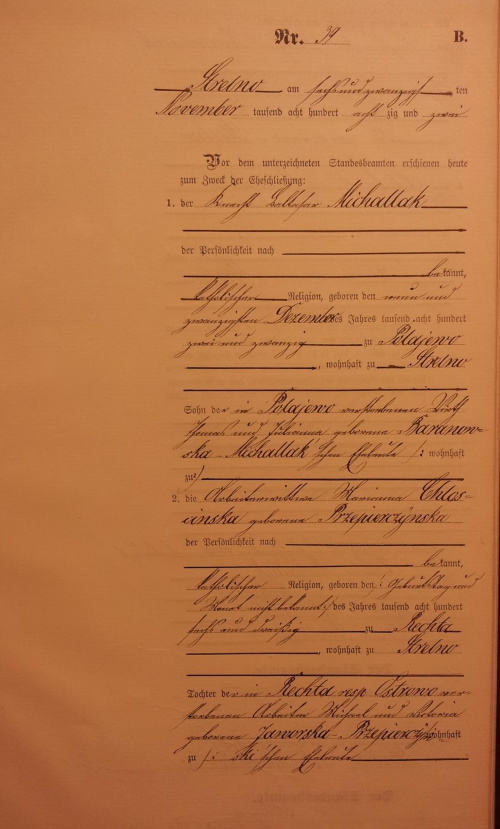 Nr. 39 B.
Strelno am sechsundzwanzigs ten
November tausend acht hundert acht zig und zwei
Vor dem unterzeichneten Standesbeamten erschienen heute
zum Zweck der Eheschließung:
1. der Knecht Balthasar Michallak
der Persönlichkeit nach
bekannt,
katholischer Religion, geboren den neun und
zwanzigsten Dezember des Jahres tausend acht hundert
zwei und zwanzig zu Polajewo
, wohnhaft zu Strelno
Sohn der in Polajewo verstorbenen Wirth
Thomas und Julianna geborene Baranow-
ska-Michallak'schen Eheleute /: wohnhaft
zu :/
2. die Arbeiterwittwe Marianna Chlos-
cinska geborene Przepierczynska
der Persönlichkeit nach
bekannt,
katholischer Religion, geboren den /: Geburtstag und
Monat nicht bekannt :/ des Jahres tausend acht hundert
sechs und dreißig zu Rechta
, wohnhaft zu Strelno
Tochter der in Rechta resp. Ostrowo ver-
storbenen Arbeiter Michael und Victoria
geborene Jaworska-Przepierczyn- wohnhaft
zu /: ski'schen Eheleute